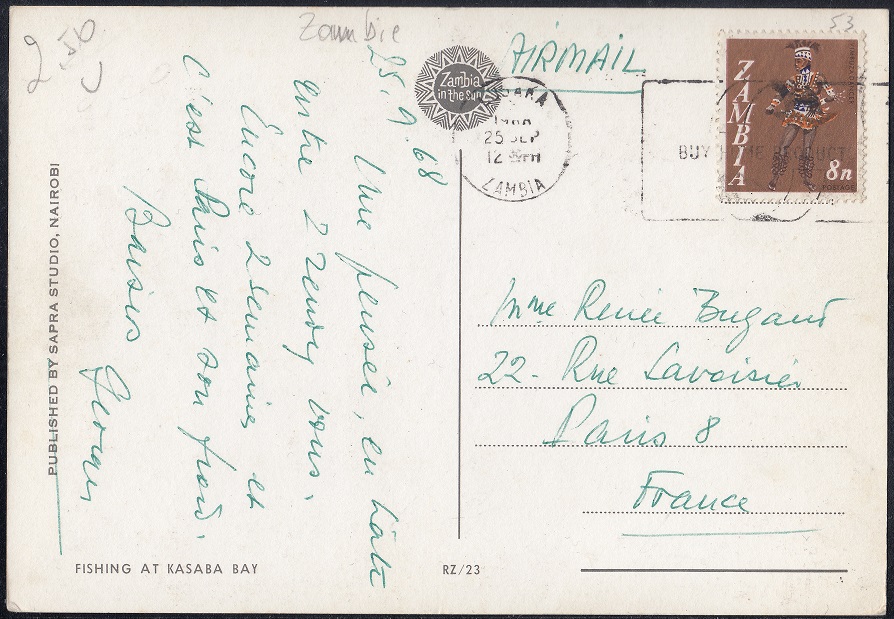 2.50
Zambie
53
AIRMAIL
Zambia
in the sun
LUSAKA
1968
25 SEP
12 PM
ZAMBIA
BUY HOME PRODUCT
ZAMBIA
8n
POSTAGE
25.9.68
Une pensée, en hâte
entre 2 rendez vous.
Encore 2 semaines et
c'est Paris et son froid.
Baisers
Georges
Mme Renée Bugaud
22 - Rue Lavoisier
Paris 8
France
PUBLISHED BY SAPRA STUDIO, NAIROBI
FISHING AT KASABA BAY
RZ/23